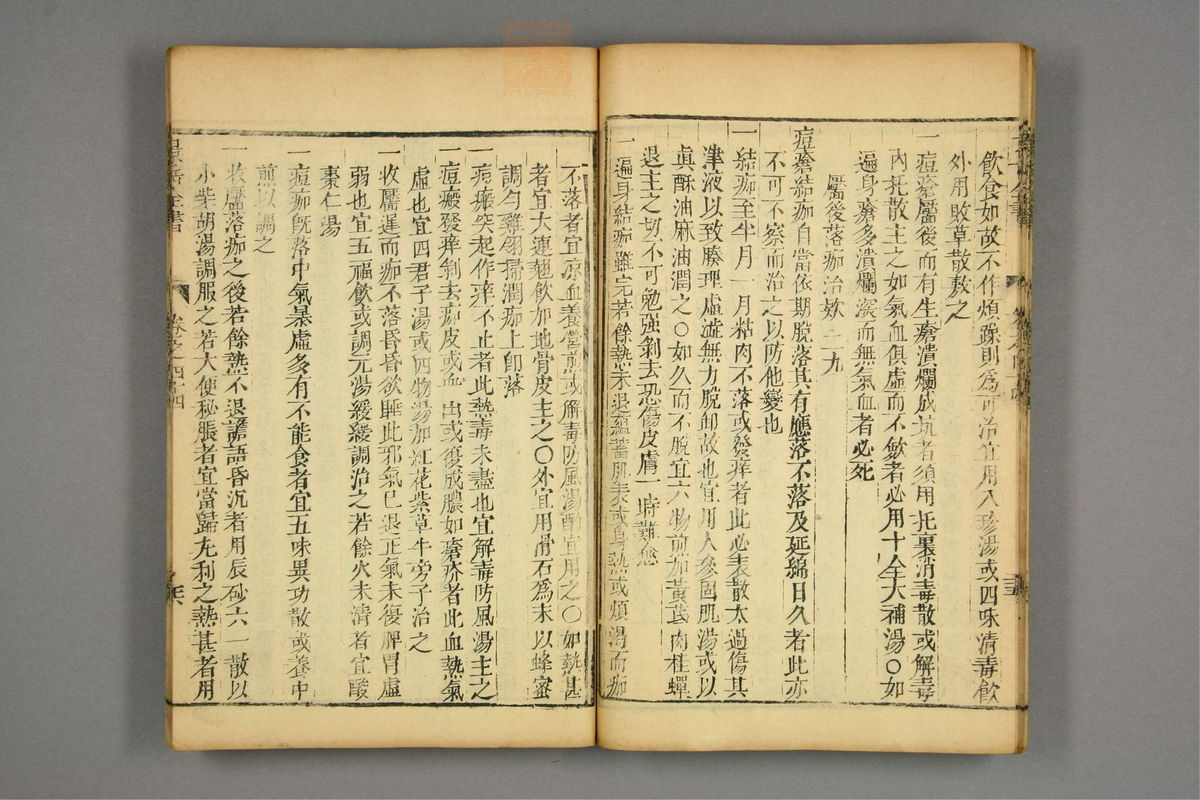 飲食如故不作煩躁則為可治宜用人參湯或四味消毒飲
外用敗草散敷之
一痘瘡靨後而有生瘡潰爛成坑者須用托裏消毒散或解毒
內托散主之如氣血俱虛而不斂者必用十全大補湯〇如
遍身瘡多潰爛深而無氣血者必死
靨後落痂治欵二九
痘瘡結痂自當依期脫落其有應落不落及延綿日久者此亦
不可不察而治之以防他變也
一結痂至半月一月粘肉不落或發痒者此必表散太過傷其
津液以致腠理虛澁無力脫卸故也宜用人參固肌湯或以
真酥油麻油潤之〇如久而不脫宜六物煎加黃茋肉桂蟬
退主之切不可勉強剝去恐傷皮膚一時難愈
一遍身結痂雖完若餘熱未退蘊蓄肌表或身熱或煩渴而痂
不落者宜涼血養營煎或解毒防風湯酌宜用之〇如熱甚
者宜大連翹飲加地骨皮主之〇外宜用滑石為末以蜂蜜
調勻雞翎掃潤痂上卽落
一痂瘢突起作痒不止者此熱毒未盡也宜解毒防風湯主之
一痘瘢發痒剝去痂皮或血出或復成膿如瘡疥者此血熱氣
虛也宜四君子湯或四物湯加紅花紫草牛旁子治之
一收靨遲而痂不落昏昏欲睡此邪氣已退正氣未復脾胃虛
弱也宜五福飲或調元湯緩緩調治之若餘火未清者宜酸
棗仁湯
一痘痂旣落中氣暴虛多有不能食者宜五味異功散或養中
煎以調之
一收靨落痂之後若餘熱不退譫語昏沉者用辰砂六一散以
小柴胡湯調服之若大便秘脹者宜當歸丸利之熱甚者用
卷之四十四